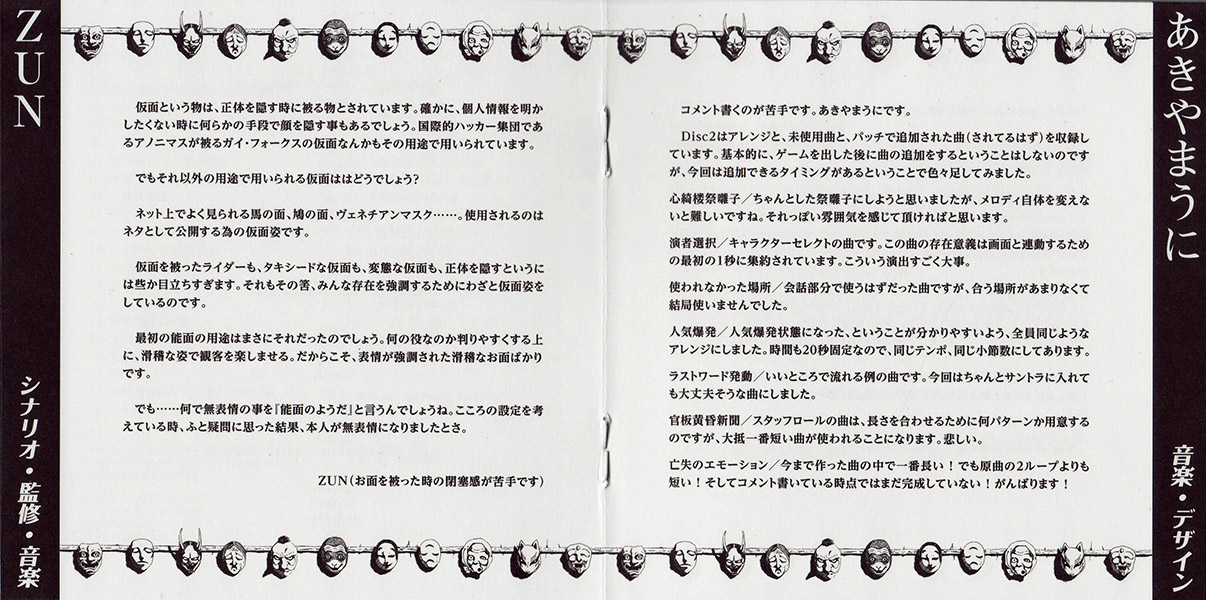 ZUN
シナリオ・監修・音楽
仮面という物は、正体を隠す時に被る物とされています。確かに、個人情報を明か
したくない時に何らかの手段で顔を隠す事もあるでしょう。国際的ハッカー集団であ
るアノニマスが被るガイ・フォークスの仮面なんかもその用途で用いられています。
でもそれ以外の用途で用いられる仮面ははどうでしょう？
ネット上でよく見られる馬の面、鳩の面、ヴェネチアンマスク……。使用されるのは
ネタとして公開する為の仮面姿です。
仮面を被ったライダーも、タキシードな仮面も、変態な仮面も、正体を隠すというに
は些か目立ちすぎます。それもその筈、みんな存在を強調するためにわざと仮面姿を
しているのです。
最初の能面の用途はまさにそれだったのでしょう。何の役なのか判りやすくする上
に、滑稽な姿で観客を楽しませる。だからこそ、表情が強調された滑稽なお面ばかり
です。
でも……何で無表情の事を『能面のようだ』と言うんでしょうね。こころの設定を考
えている時、ふと疑問に思った結果、本人が無表情になりましたとさ。
ZUN（お面を被った時の閉塞感が苦手です）
あきやまうに
音楽・デザイン
コメント書くのが苦手です。あきやまうにです。
Disc2はアレンジと、未使用曲と、パッチで追加された曲（されてるはず）を収録し
ています。基本的に、ゲームを出した後に曲の追加をするということはしないのです
が、今回は追加できるタイミングがあるということで色々足してみました。
心綺楼祭囃子／ちゃんとした祭囃子にしようと思いましたが、メロディ自体を変えな
いと難しいですね。それっぽい雰囲気を感じて頂ければと思います。
演者選択／キャラクターセレクトの曲です。この曲の存在意義は画面と連動するため
の最初の1秒に集約されています。こういう演出すごく大事。
使われなかった場所／会話部分で使うはずだった曲ですが、合う場所があまりなくて
結局使いませんでした。
人気爆発／人気爆発状態になった、ということが分かりやすいよう、全員同じような
アレンジにしました。時間も20秒固定なので、同じテンポ、同じ小節数にしてあります。
ラストワード発動／いいところで流れる例の曲です。今回はちゃんとサントラに入れて
も大丈夫そうな曲にしました。
官板黄昏新聞／スタッフロールの曲は、長さを合わせるために何パターンか用意する
のですが、大抵一番短い曲が使われることになります。悲しい。
亡失のエモーション／今まで作った曲の中で一番長い！でも原曲の2ループよりも
短い！そしてコメント書いている時点ではまだ完成していない！がんばります！